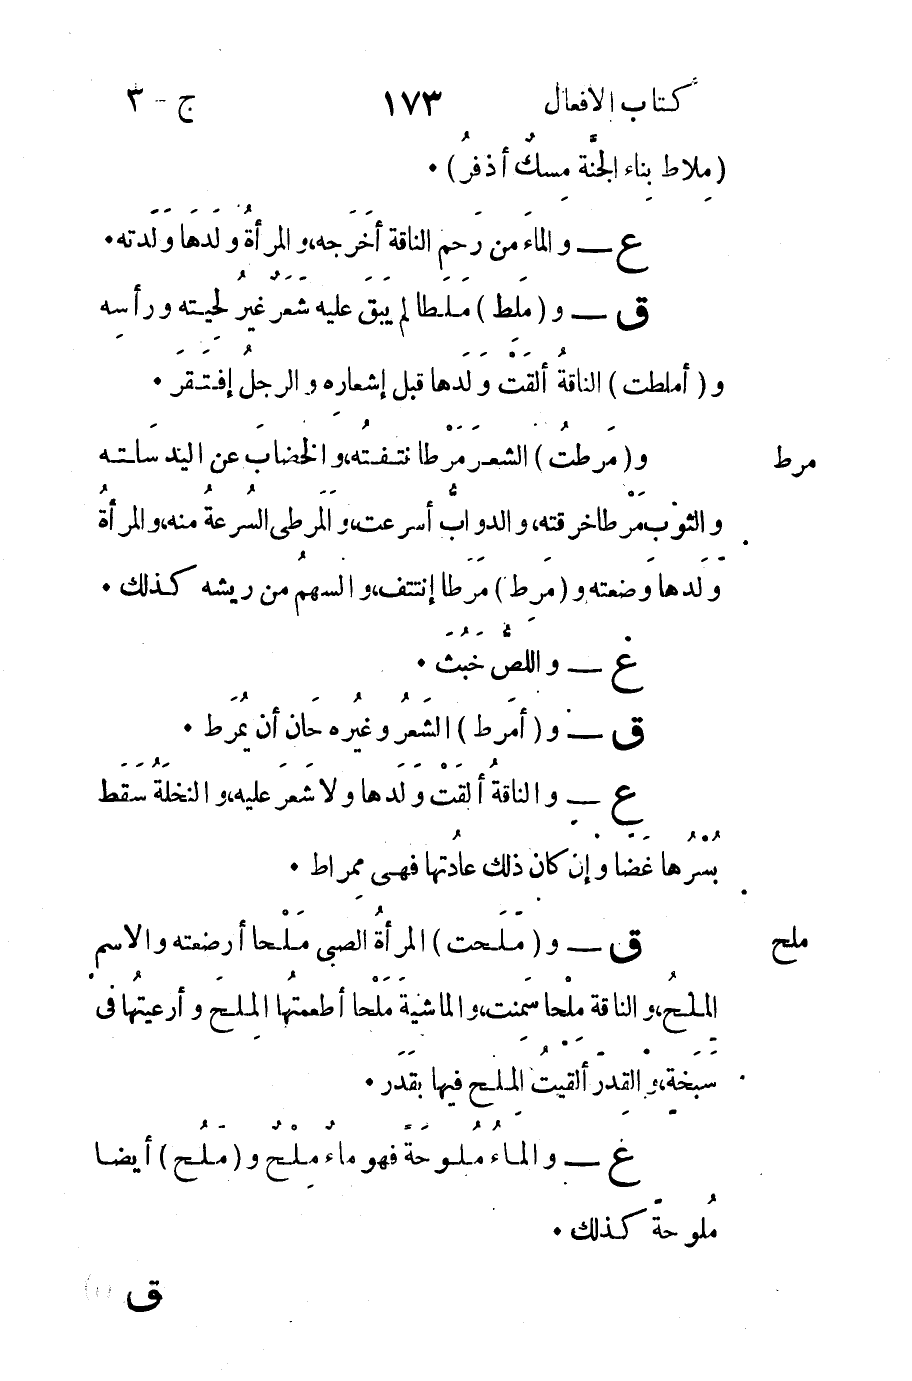 كتاب الافعال ١٧٣ ج - ٣
(مِلاط بِناء الجنَّة مِسكٌ أذفرُ) •
ع — والماءَ من رَحِم الناقة أخرَجه، والمرأةُ ولدَها وَلَدَته •
ق — و (مَلِط) مَلَطا لم يَبقَ عليه شَعَرٌ غيرُ لِحيته ورأسِه
و (أملطت) الناقةُ ألقَتْ وَلَدها قبل إشعارِه والرجلُ إفتَقَر •
مرط و (مَرطتُ) الشعرَ مَرْطا نتفتُه، والخضابَ عن اليد سَلَتـته
والثوبَ مَرْطا خرقته، والدوابُّ أسرعت، والمَرَطى السُرعةُ منه، والمرأةُ
وَلَدها وَضعته و (مَرِط) مَرَطا إنتتف، والسهمُ من ريشه كذلك •
غ — واللصُّ خَبُثَ •
ق — و (أمَرط) الشَعَرُ وغيرُه حَان أن يُمرَط •
ع — والناقةُ ألقَتْ وَلَدها ولا شَعَر عليه، والنخلَةُ سَقط
بُسْرُها غَضّا وإن كان ذلك عادُتها فهى ممراط •
ملح ق — و (مَلَحت) المرأةُ الصبى مَلْحا أرضعته والاسم
المِلحُ، والناقة مِلْحا سَمِنت، والماشيةَ مَلْحا أطعمتُها المِلحَ وأرعيتُها فى
سَبَخة، والقِدرَ ألقيتُ المِلح فيها بقَدَر •
غ — والماءُ مُلوحَةً فهو ماءٌ مِلْحٌ و (مَلُح) أيضا
مُلوحةً كذلك •
ق (١)